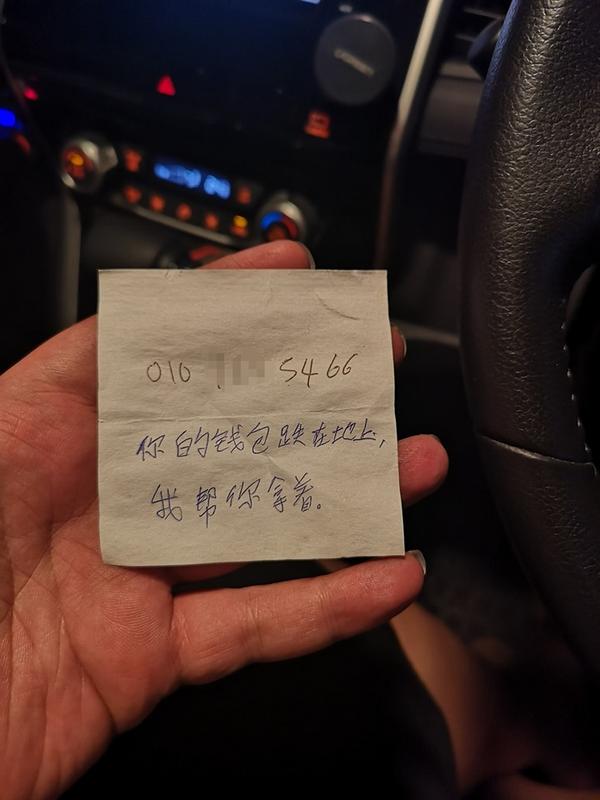 010 5466
你的钱包跌在地上,
我帮你拿着。